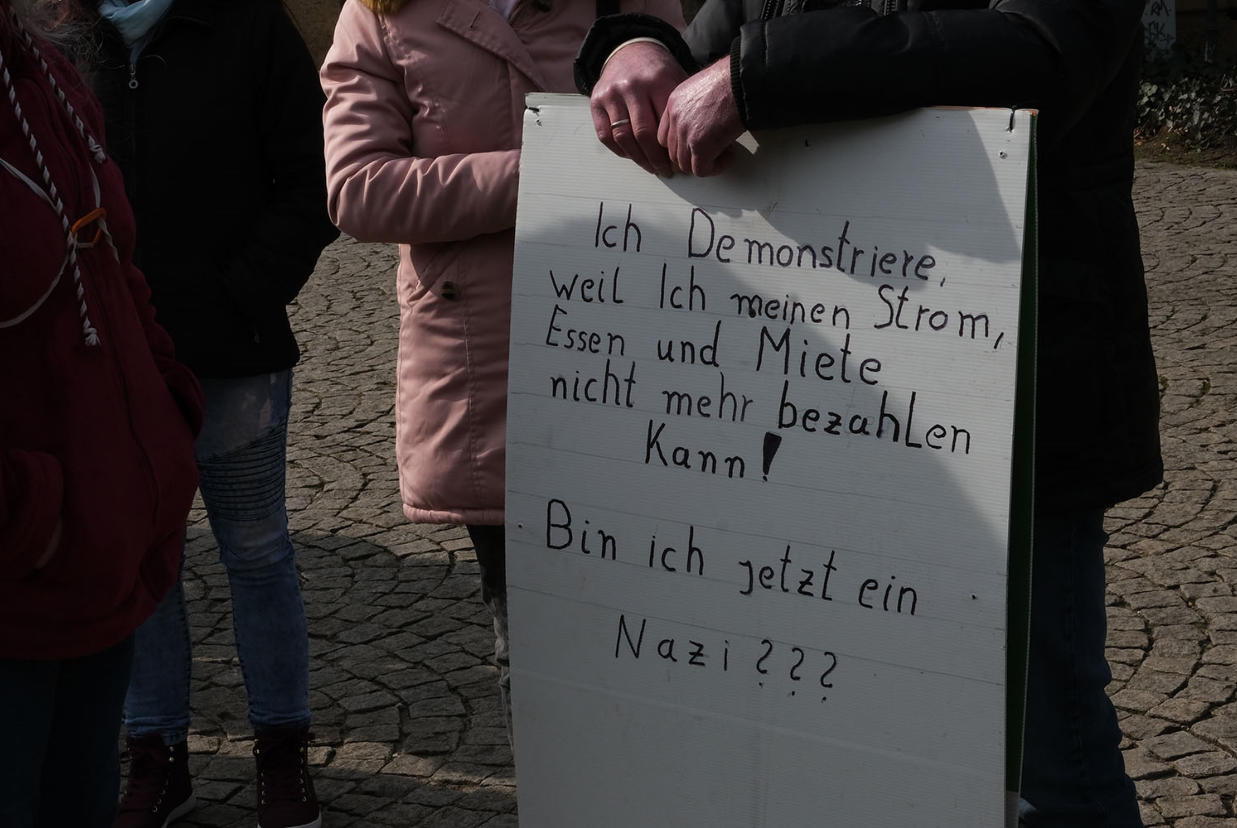 Ich Demonstriere,
weil Ich meinen Strom,
Essen und Miete
nicht mehr bezahlen
Kann!
Bin ich jetzt ein
Nazi???